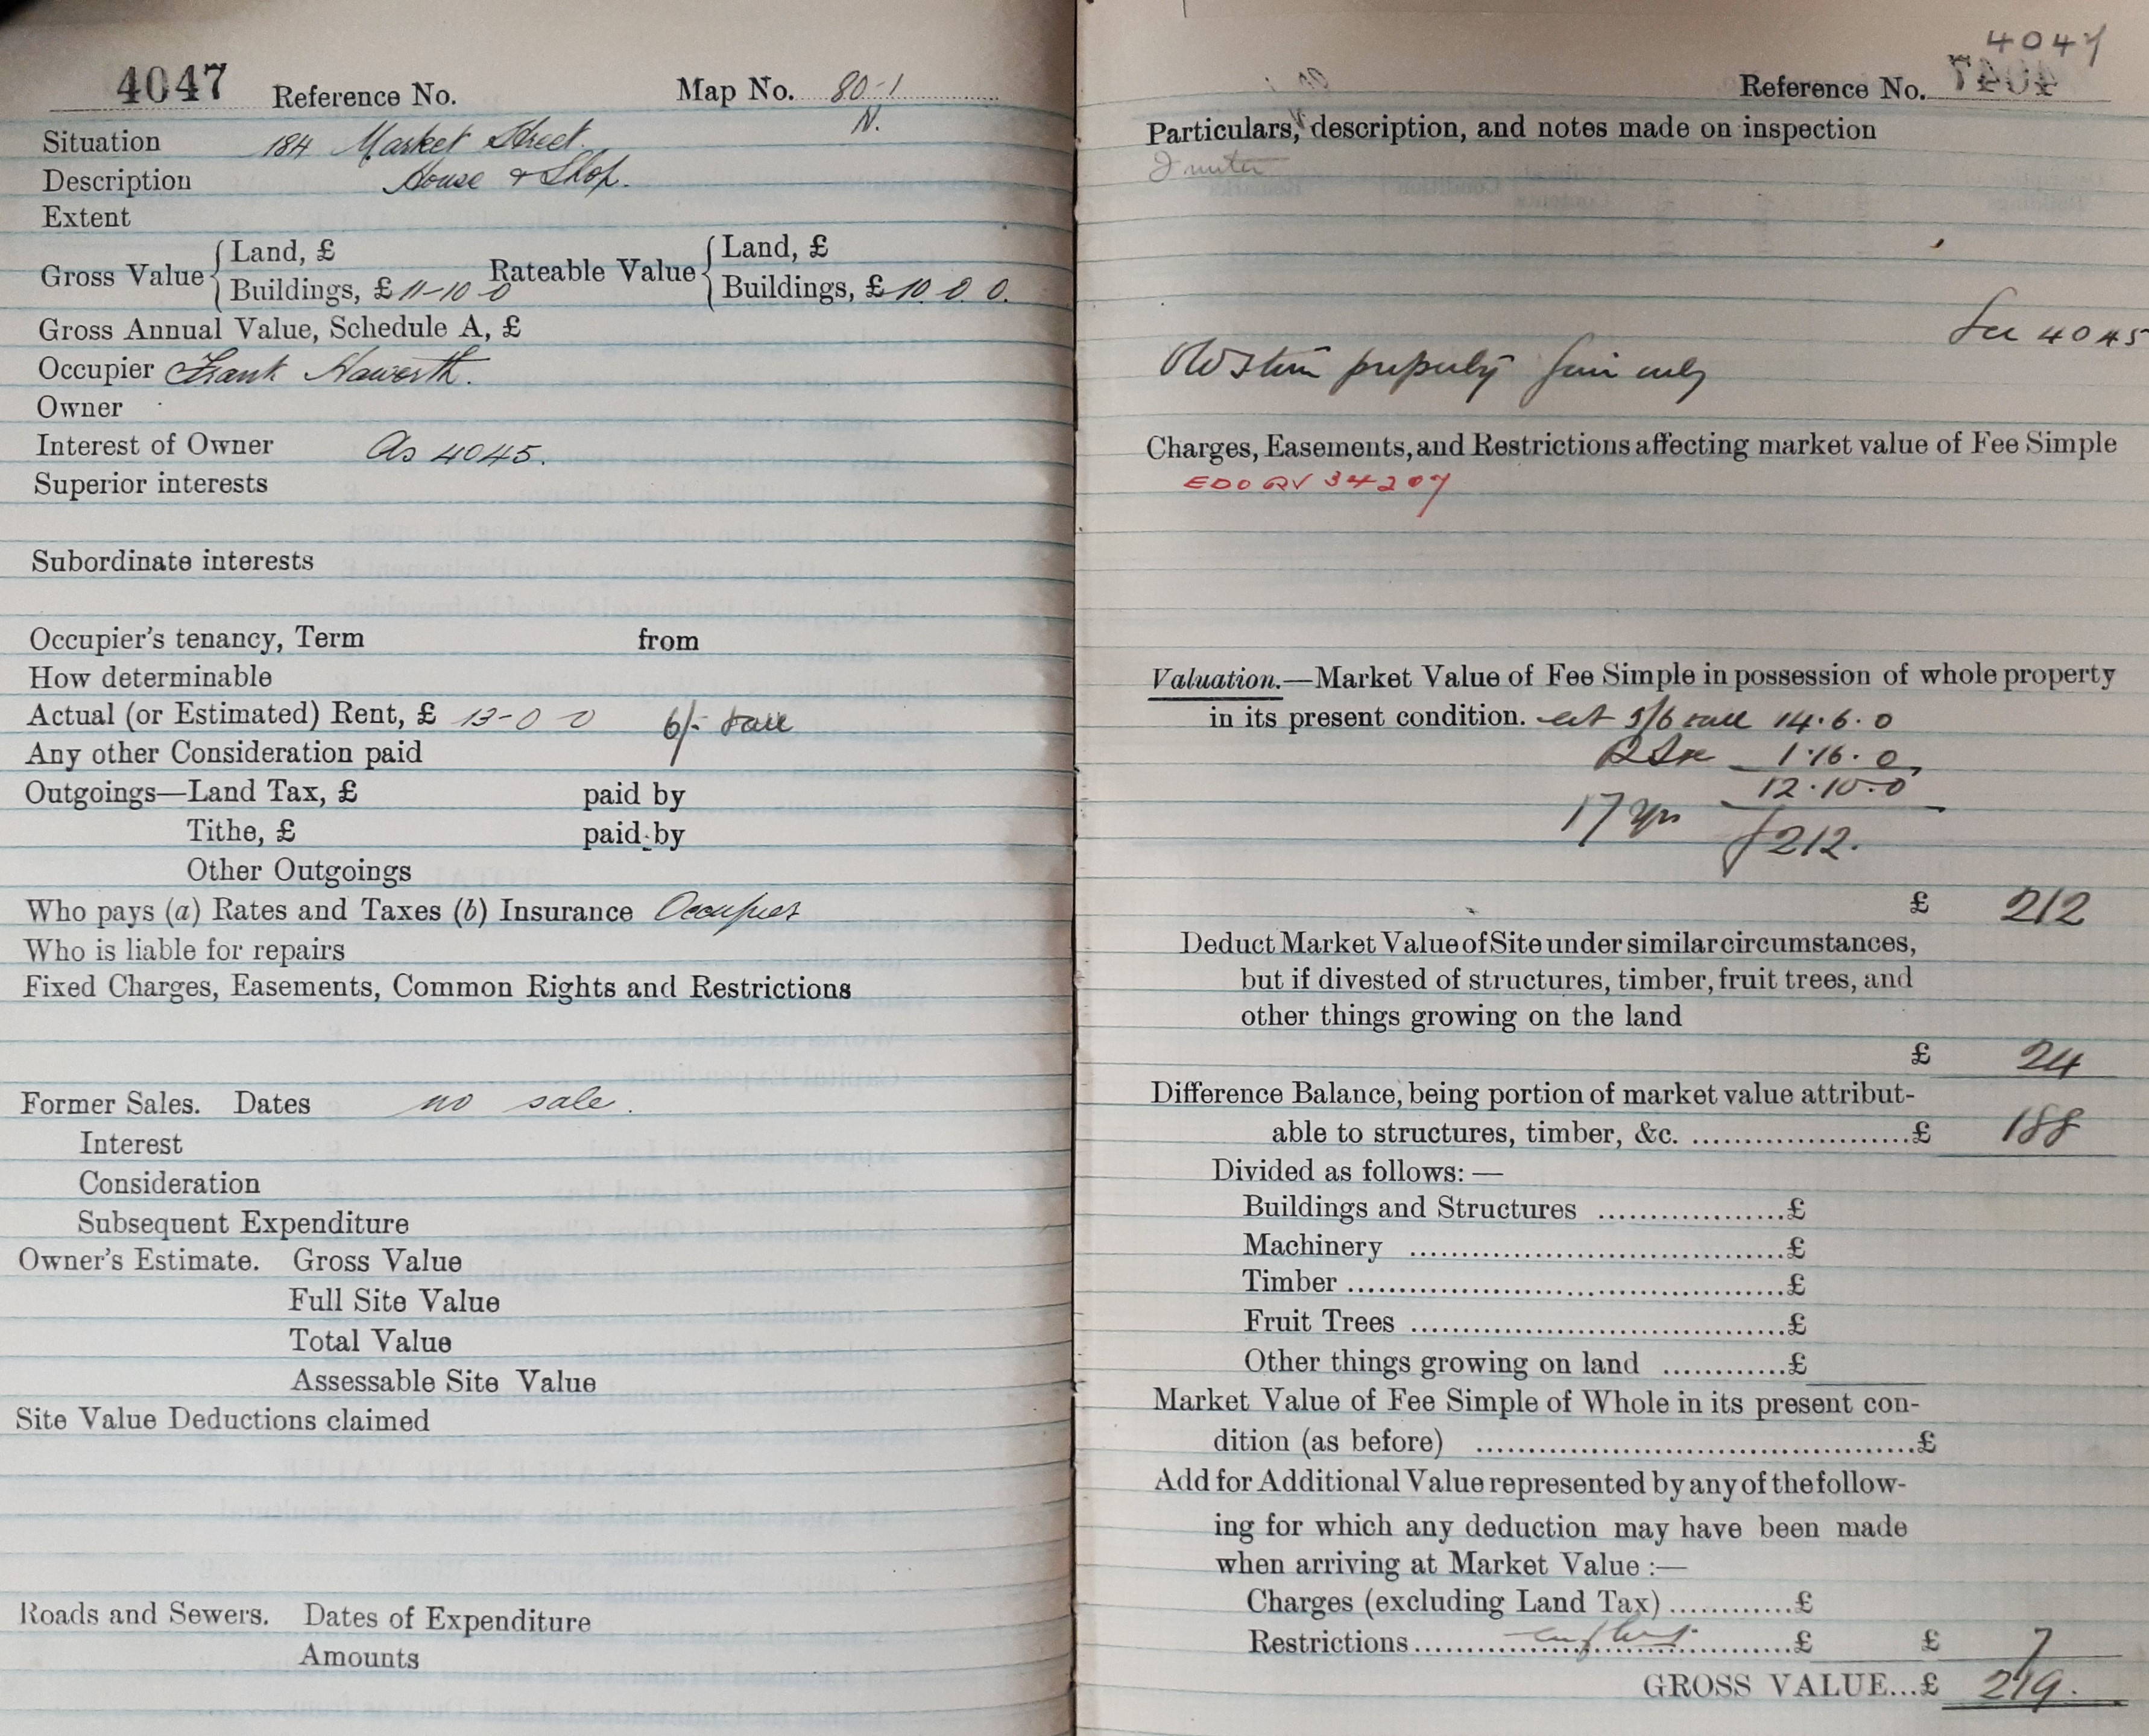 4047 Reference No. Map No. 80-1
N.
Situation 184 Market Street.
Description House & Shop.
Extent
Gross Value { Land, £ Rateable Value { Land, £
Buildings, £ 11-10-0 Buildings, £ 10. 0. 0.
Gross Annual Value, Schedule A, £
Occupier Frank Haworth.
Owner
Interest of Owner As 4045.
Superior interests
Subordinate interests
Occupier's tenancy, Term from
How determinable
Actual (or Estimated) Rent, £ 13-0 0 6/-
Any other Consideration paid
Outgoings—Land Tax, £ paid by
Tithe, £ paid by
Other Outgoings
Who pays (a) Rates and Taxes (b) Insurance Occupier
Who is liable for repairs
Fixed Charges, Easements, Common Rights and Restrictions
Former Sales. Dates no sale.
Interest
Consideration
Subsequent Expenditure
Owner's Estimate. Gross Value
Full Site Value
Total Value
Assessable Site Value
Site Value Deductions claimed
Roads and Sewers. Dates of Expenditure
Amounts
4047
Reference No. 4047
Particulars, description, and notes made on inspection
See 4045
property fair only
Charges, Easements, and Restrictions affecting market value of Fee Simple
34207
Valuation.—Market Value of Fee Simple in possession of whole property
in its present condition. at 5/6 14.6.0
1.16.0
12.10.0
17 yrs £212.
£ 212
Deduct Market Value of Site under similar circumstances,
but if divested of structures, timber, fruit trees, and
other things growing on the land
£ 24
Difference Balance, being portion of market value attribut-
able to structures, timber, &c. ....................£ 188
Divided as follows:—
Buildings and Structures ..................£
Machinery ....................................£
Timber ..........................................£
Fruit Trees ....................................£
Other things growing on land ............£
Market Value of Fee Simple of Whole in its present con-
dition (as before) ..........................................£
Add for Additional Value represented by any of the follow-
ing for which any deduction may have been made
when arriving at Market Value :—
Charges (excluding Land Tax) ............£
Restrictions....................................£ £ 7
GROSS VALUE...£ 219.